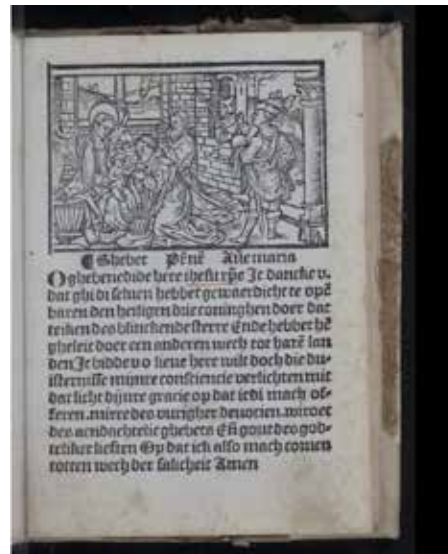 ¶ Ghebet Pr̄nr̄ Aue maria
O ghebenedide here ihesu xp̄e Ic dancke v.
dat ghi di seluen hebbet gewaerdicht te opē
baren den heiligen drie coninghen doer dat
teiken des blinckende sterre Ende hebbet hē
gheleit doer een anderen wech tot harē lan
den Ic bidde v o lieue here wilt doch die du-
isternisse mijnre consciencie verlichten mit
dat licht dijnre gracie op dat ic di mach of-
feren mirre des vurigher deuocien. wiroec
des aendachtelic ghebets Eñ gout des god-
teliker lieften Op dat ick also mach comen
totten wech der salicheit Amen